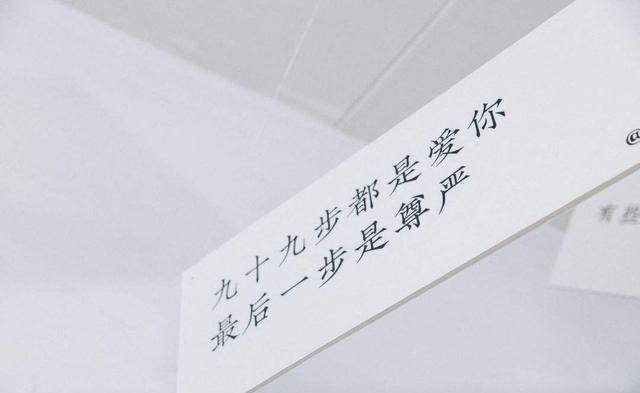 九十九步都是爱你
最后一步是尊严
@
有些